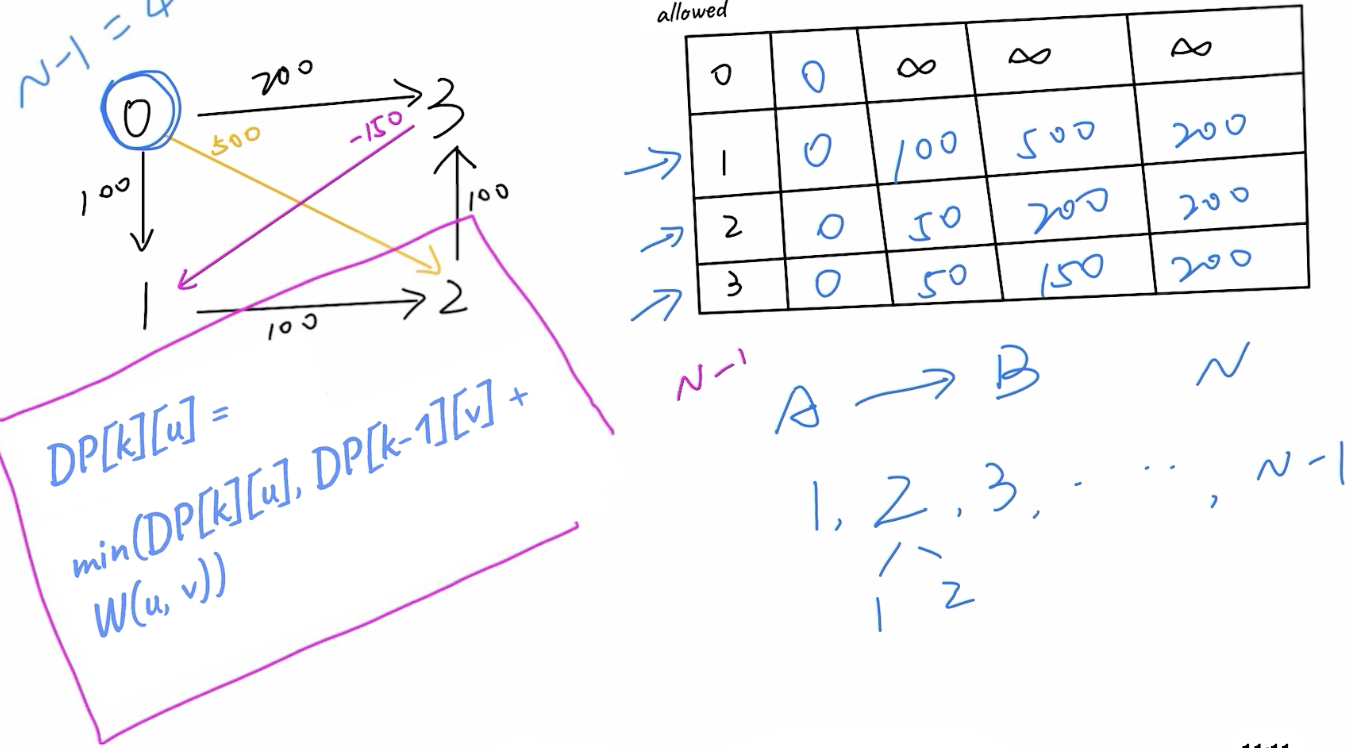 N-1 = 4
0
200
3
500
-150
100
100
1
100
2
DP[k][u] =
min(DP[k][u], DP[k-1][v] +
W(u, v))
allowed
0 0 ∞ ∞ ∞
1 0 100 500 200
2 0 50 200 200
3 0 50 150 200
N-1
A → B N
1, 2, 3, . .. , N-1
1 2